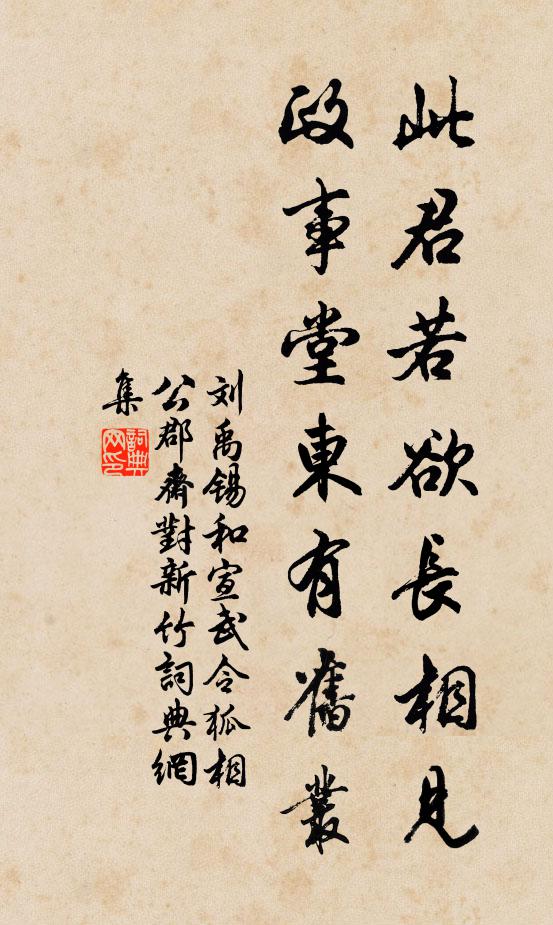 此君若欲長相見
政事堂東有舊叢
刘禹锡和宣武令狐相
公郡齋對新竹詞典網
集
詞典
网印